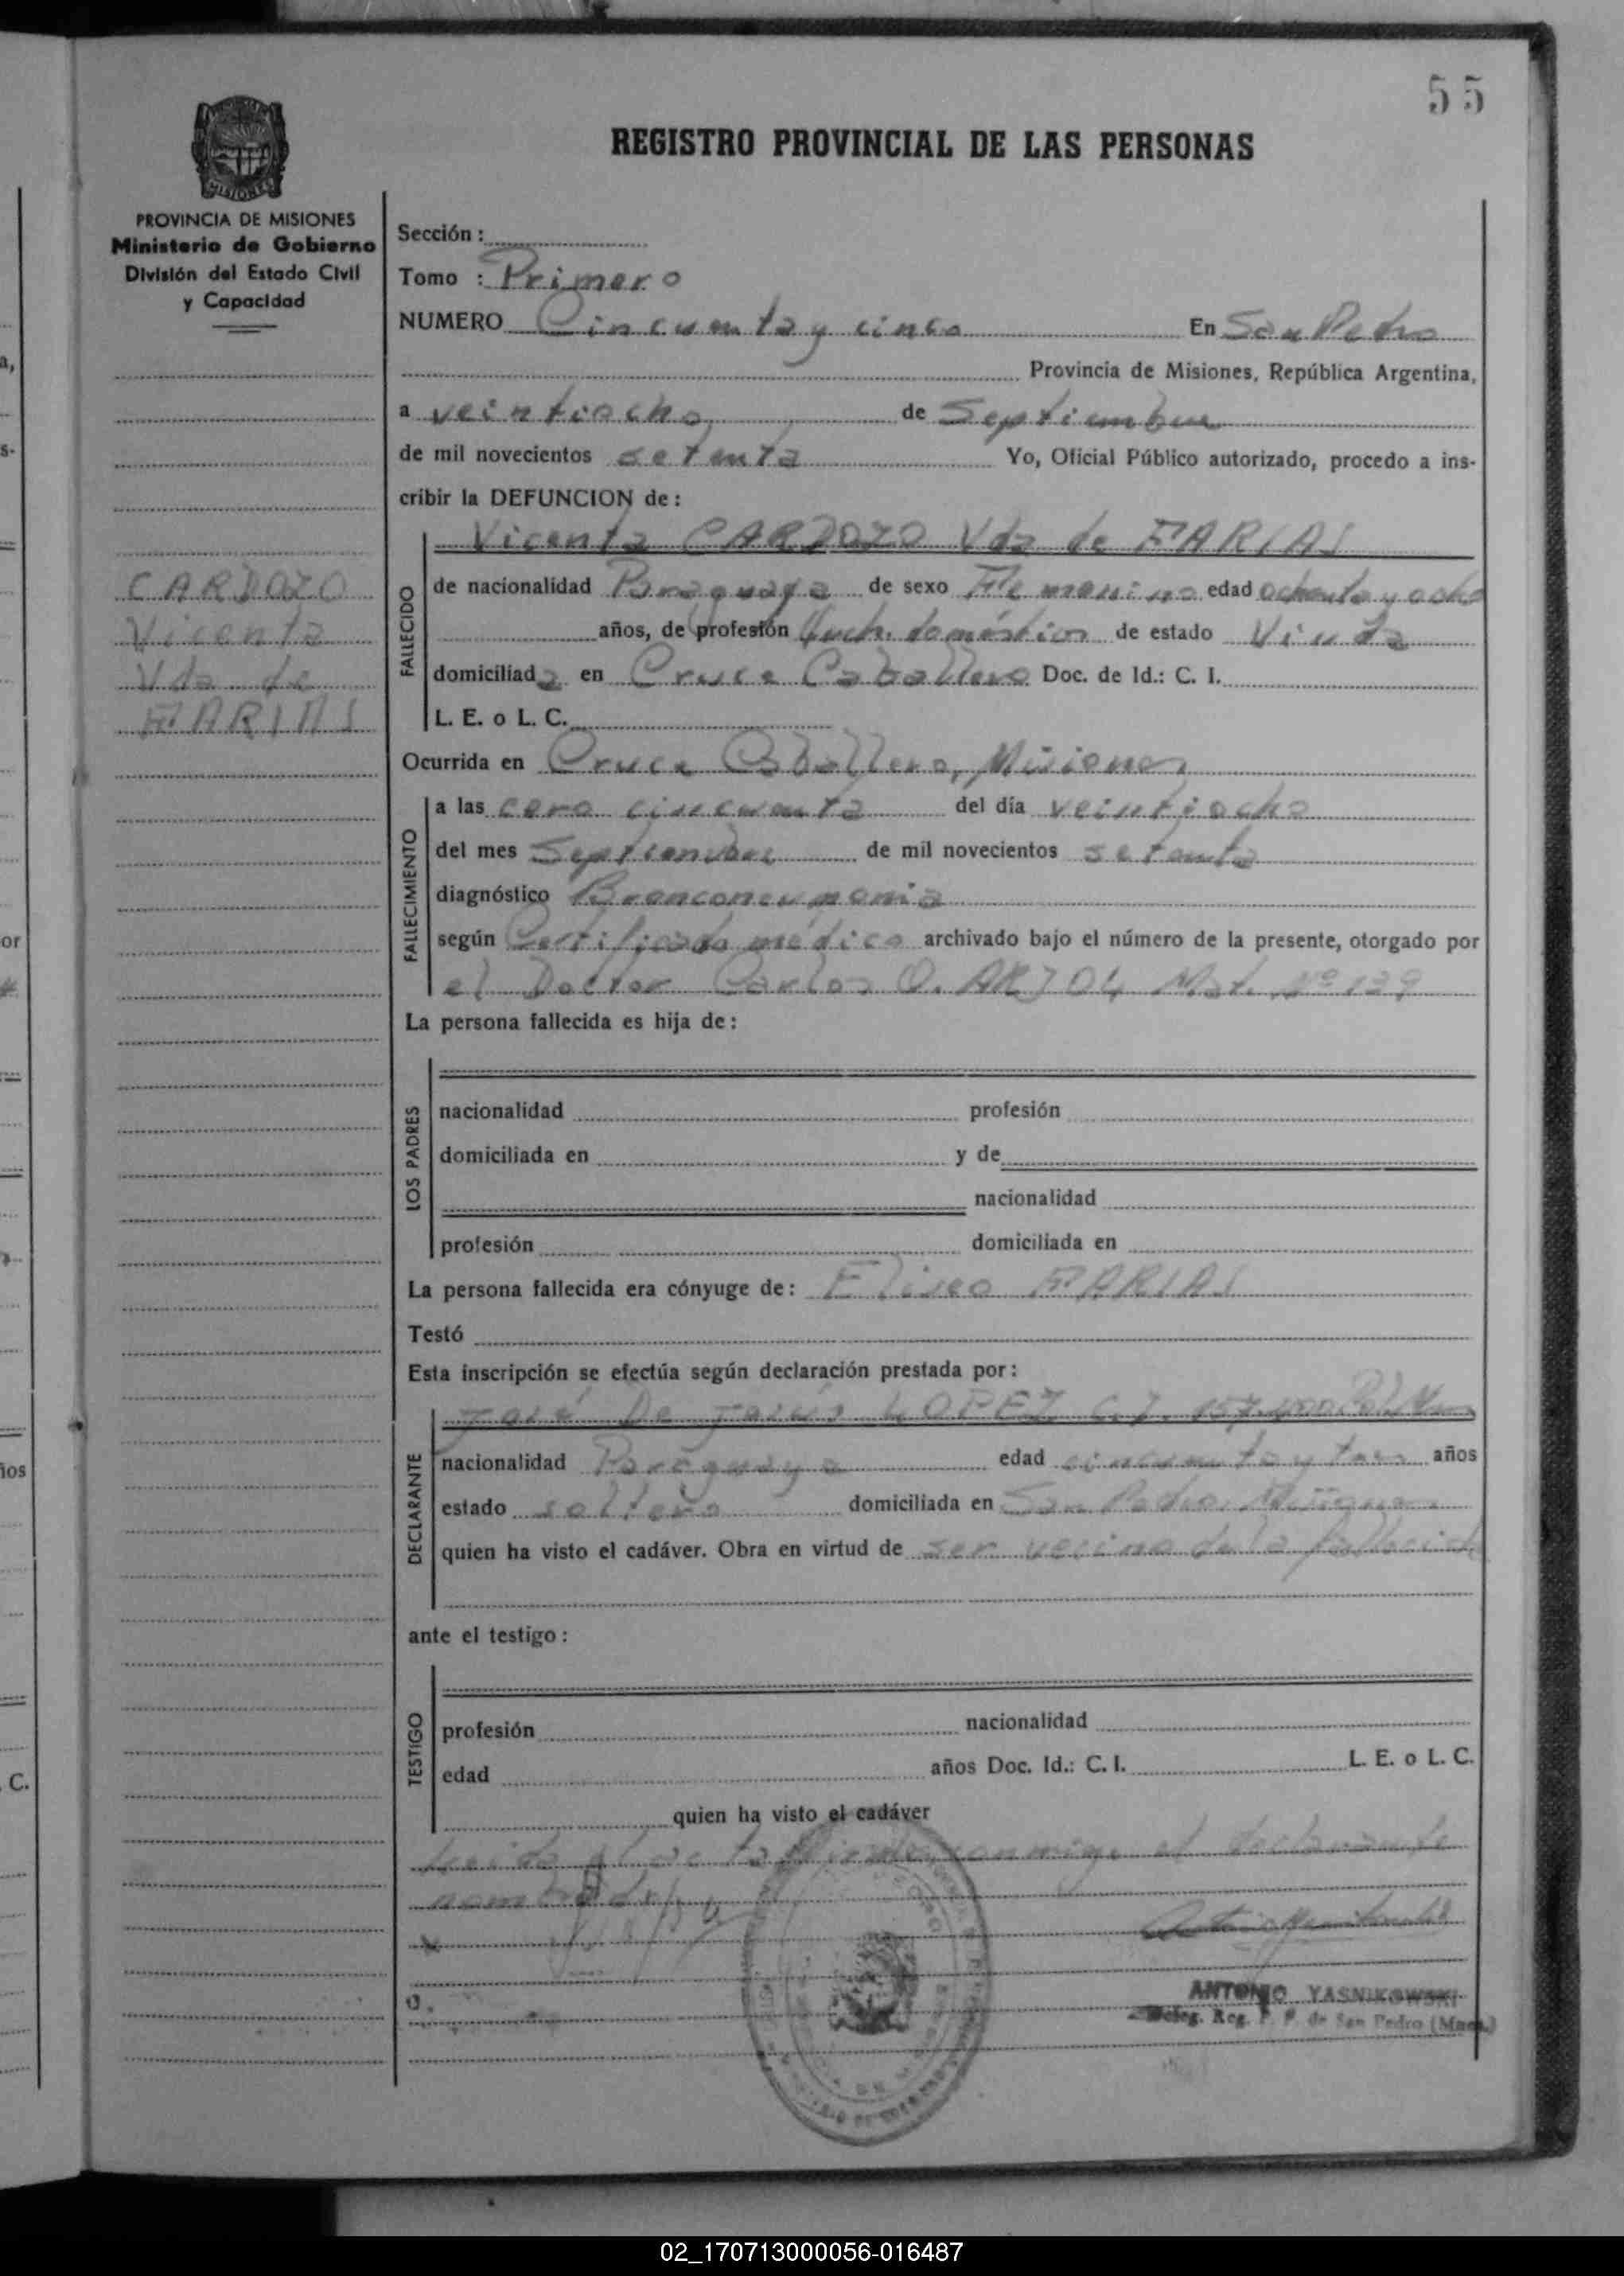 55
REGISTRO PROVINCIAL DE LAS PERSONAS
MISIONES
PROVINCIA DE MISIONES
Ministerio de Gobierno
División del Estado Civil
y Capacidad
CARDOZO
Vicenta
Vda de
FARIAS
Sección:
Tomo : Primero
NUMERO Cincuenta y cinco En San Pedro
Provincia de Misiones, República Argentina,
a veintiocho de Septiembre
de mil novecientos setenta Yo, Oficial Público autorizado, procedo a ins-
cribir la DEFUNCION de:
Vicenta CARDOZO Vda de FARIAS
FALLECIDO
de nacionalidad Paraguaya de sexo Femenino edad ochenta y ocho
años, de profesión Queh. domésticos de estado Viuda
domiciliada en Cruce Caballero Doc. de Id.: C. I.
L. E. o L. C.
Ocurrida en Cruce Caballero, Misiones
FALLECIMIENTO
a las cero cincuenta del día veintiocho
del mes Septiembre de mil novecientos setenta
diagnóstico Bronconeumonia
según Certificado médico archivado bajo el número de la presente, otorgado por
el Doctor Carlos O. Mat. Nº 139
La persona fallecida es hija de:
LOS PADRES
nacionalidad profesión
domiciliada en y de
nacionalidad
profesión domiciliada en
La persona fallecida era cónyuge de: Eliseo FARIAS
Testó
Esta inscripción se efectúa según declaración prestada por:
José De Jesús LOPEZ C.I.
DECLARANTE
nacionalidad Paraguaya edad cincuenta y tres años
estado soltero domiciliada en San Pedro, Misiones
quien ha visto el cadáver. Obra en virtud de ser vecino de la fallecida
ante el testigo:
TESTIGO
profesión nacionalidad
edad años Doc. Id.: C. I. L. E. o L. C.
quien ha visto el cadáver
Leida el acta conmigo el declarante
nombrado
ANTONIO YASNIKOWSKI
Deleg. Reg. P. P. de San Pedro (Mnes.)
02_170713000056-016487